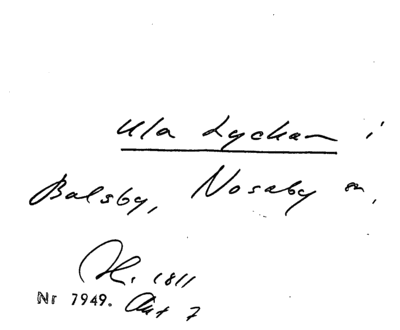 Ola Lyckan i
Balsby, Nosaby sn,
H. 1811
Nr 7949. Ant 7